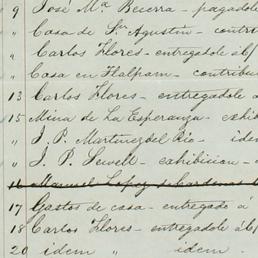 9 José Mª Becerra - pagadole
" Casa de Sn Agustin - contri
" Carlos Flores - entregadole á b/
" Casa en Tlalpam - contribu
13 Carlos Flores - entregadole a
15 Mina de La Esperanza - exhib
" J. P. Martinez del Rio - idem
" J. P. Sewell - exhibicion - a
16 Manuel Lopez de Cardenas
17 Gastos de casa - entregado á
18 Carlos Flores - entregadole á b/
20 idem " idem